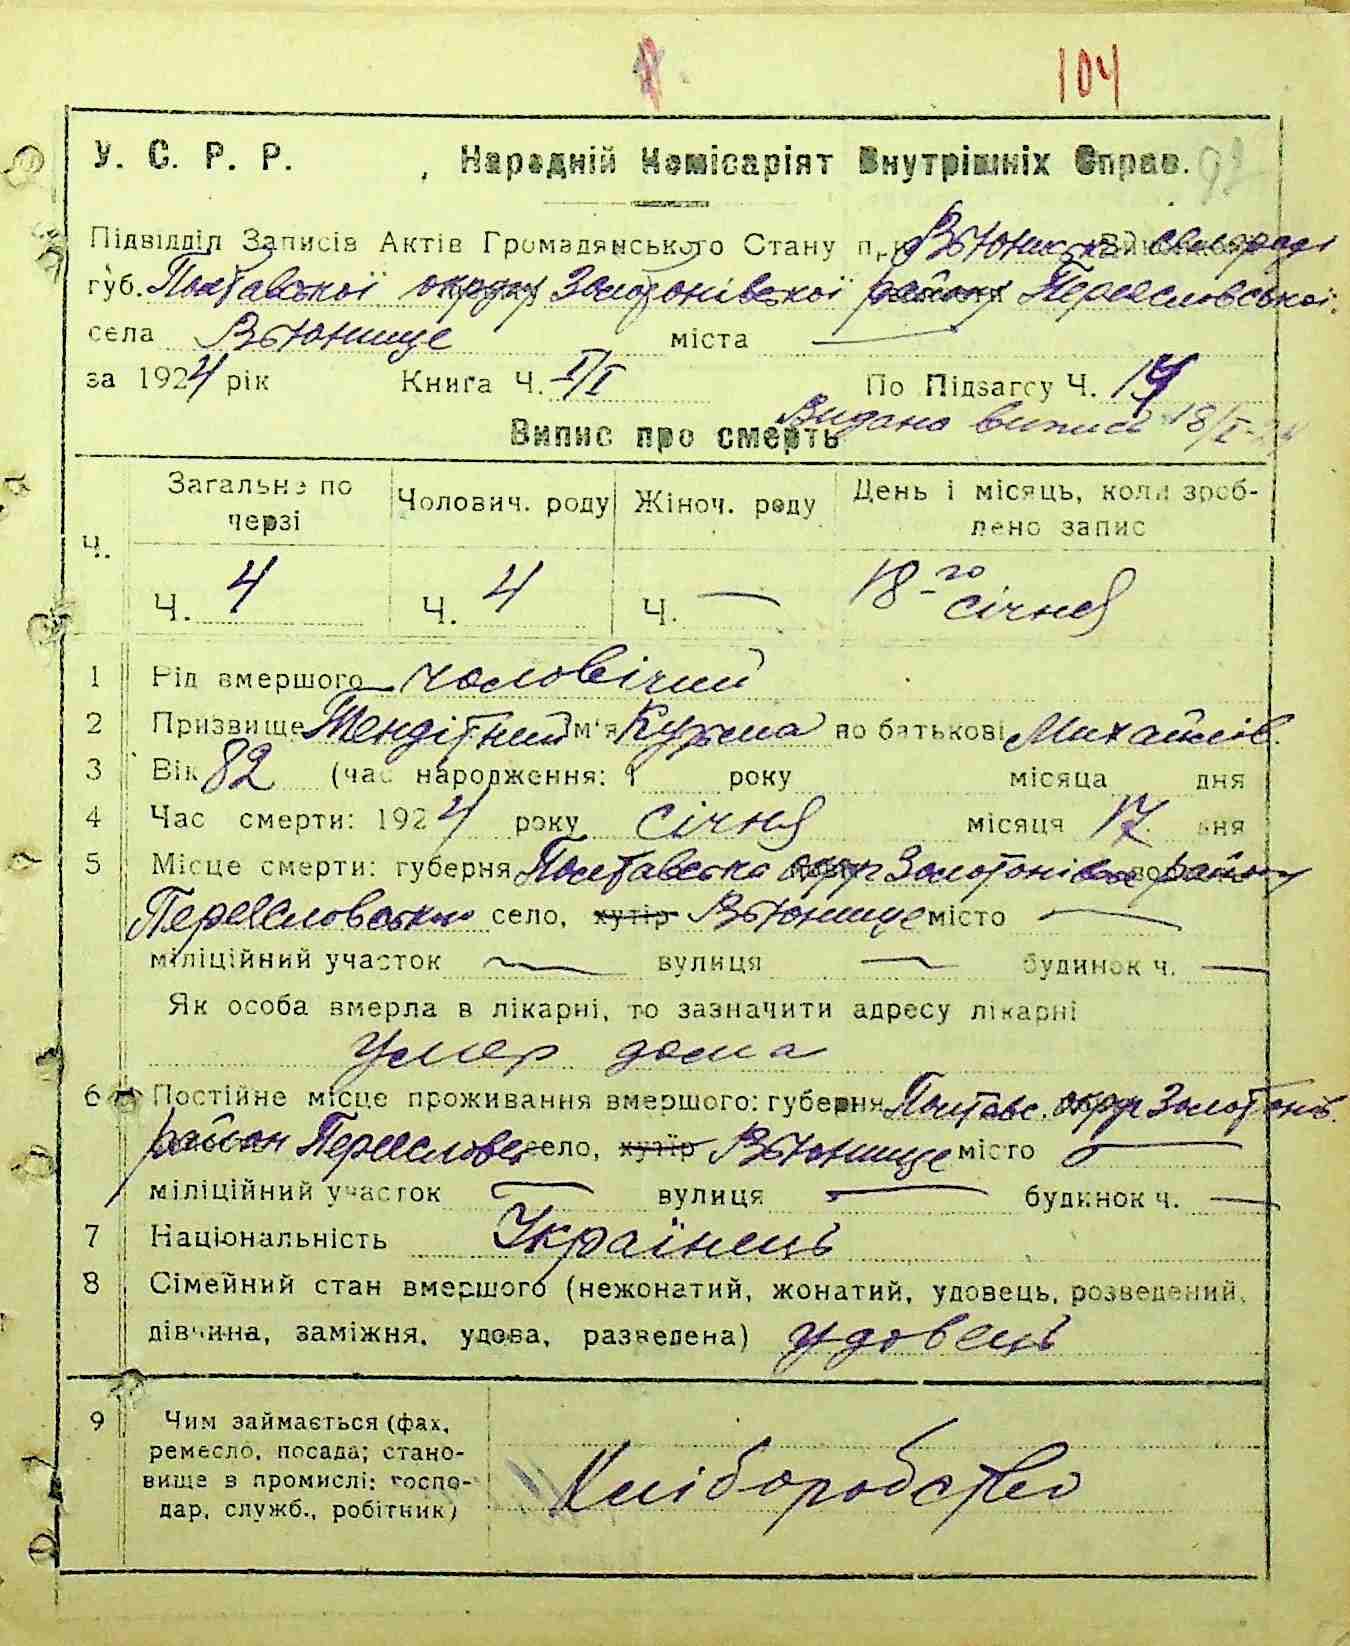 104
У. С. Р. Р. Народній Комісаріят Внутрішніх Справ. 92
Підвідділ Записів Актів Громадянського Стану при Вьюниській сельраді
губ. Полтавської округу Золотонівської району Переясловської
села Вьюнище міста —
за 1924 рік Книга Ч. I/I По Підзагсу Ч. 14
Видано випись 18/I-24
Випис про смерть
Ч. Загальне по черзі Чолович. роду Жіноч. роду День і місяць, коли зроблено запис
Ч. 4 Ч. 4 Ч. — 18-го січня
1 Рід вмершого чоловічий
2 Призвище Тендітний Ім'я Кузьма по батькові Михайлів.
3 Вік 82 (час народження: 1 року місяца дня
4 Час смерти: 1924 року січня місяця 17 дня
5 Місце смерти: губерня Полтавська округ Золотонівська район
Переясловської село, хутір Вьюнище місто —
міліційний участок — вулиця — будинок ч. —
Як особа вмерла в лікарні, то зазначити адресу лікарні
умер дома
6 Постійне місце проживання вмершого: губерня Полтавс. округ Золотонів.
район Переяслове село, хутір Вьюнище місто —
міліційний участок — вулиця — будинок ч. —
7 Національність Українець
8 Сімейний стан вмершого (нежонатий, жонатий, удовець, розведений,
дівчина, заміжня, удова, разведена) удовець
9 Чим займається (фах,
ремесло, посада; стано-
вище в промислі: госпо-
дар, служб., робітник)
Хліборобство